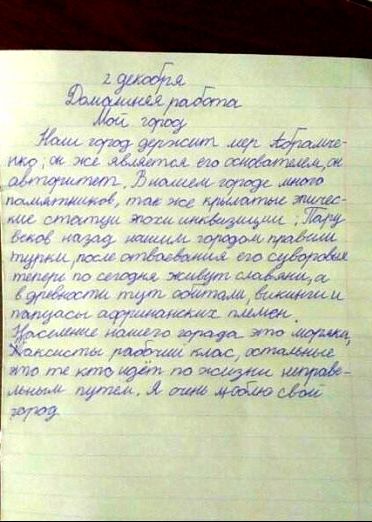 2 декабря
Домашняя работа
Мой город
Наш город держит мер Абраме-
нко; он же является его основателем, он
авторитет. В нашем городе много
памятников, так же крылатые эпичес-
кие статуи эпохи инквизиции; Пару
веков назад нашим городом правили
турки, после отваевания его суворовые
теперь по сегодня живут славяни, а
в древности тут обитали, викинги и
папуасы африканских племен.
Население нашего города это моряки,
Таксисты рабочий клас, остальные
это те кто идёт по жизни неправе-
льным путем. Я очень люблю свой
город